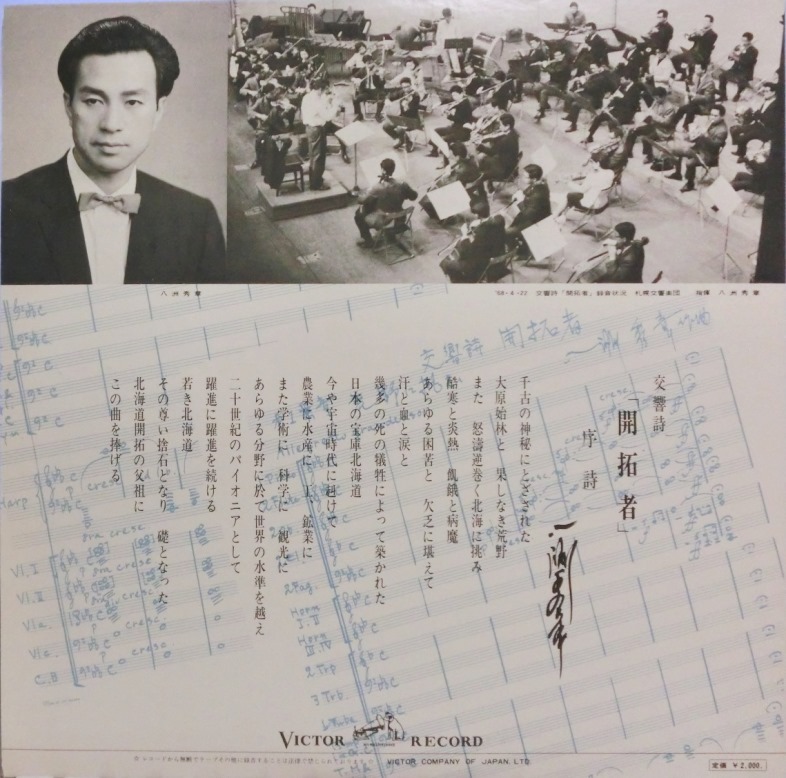 八洲秀章
'68-4-22 交響詩「開拓者」録音状況 札幌交響楽団 指揮 八洲秀章
交響詩 開拓者
八洲秀章作曲
交響詩
「開拓者」
序詩
千古の神秘にとざされた
大原始林と 果しなき荒野
また 怒濤逆巻く北海に挑み
酷寒と炎熱 飢餓と病魔
あらゆる困苦と 欠乏に堪えて
汗と血と涙と
幾多の死の犠牲によって築かれた
日本の宝庫北海道
今や宇宙時代に迎けて
農業に水産に 工、鉱業に
また学術に 科学に 観光に
あらゆる分野に於て世界の水準を越え
二十世紀のパイオニアとして
躍進に躍進を続ける
若き北海道
その尊い捨石となり 礎となった
北海道開拓の父祖に
この曲を捧げる
Harp
Vl. I
Vl. II
Vla.
Vlc.
C.B
2 Fag.
Horn I. II
Horn III. IV
2 Trp
3 Trb.
VICTOR RECORD
VICTOR COMPANY OF JAPAN, LTD.
定価 ¥2,000.